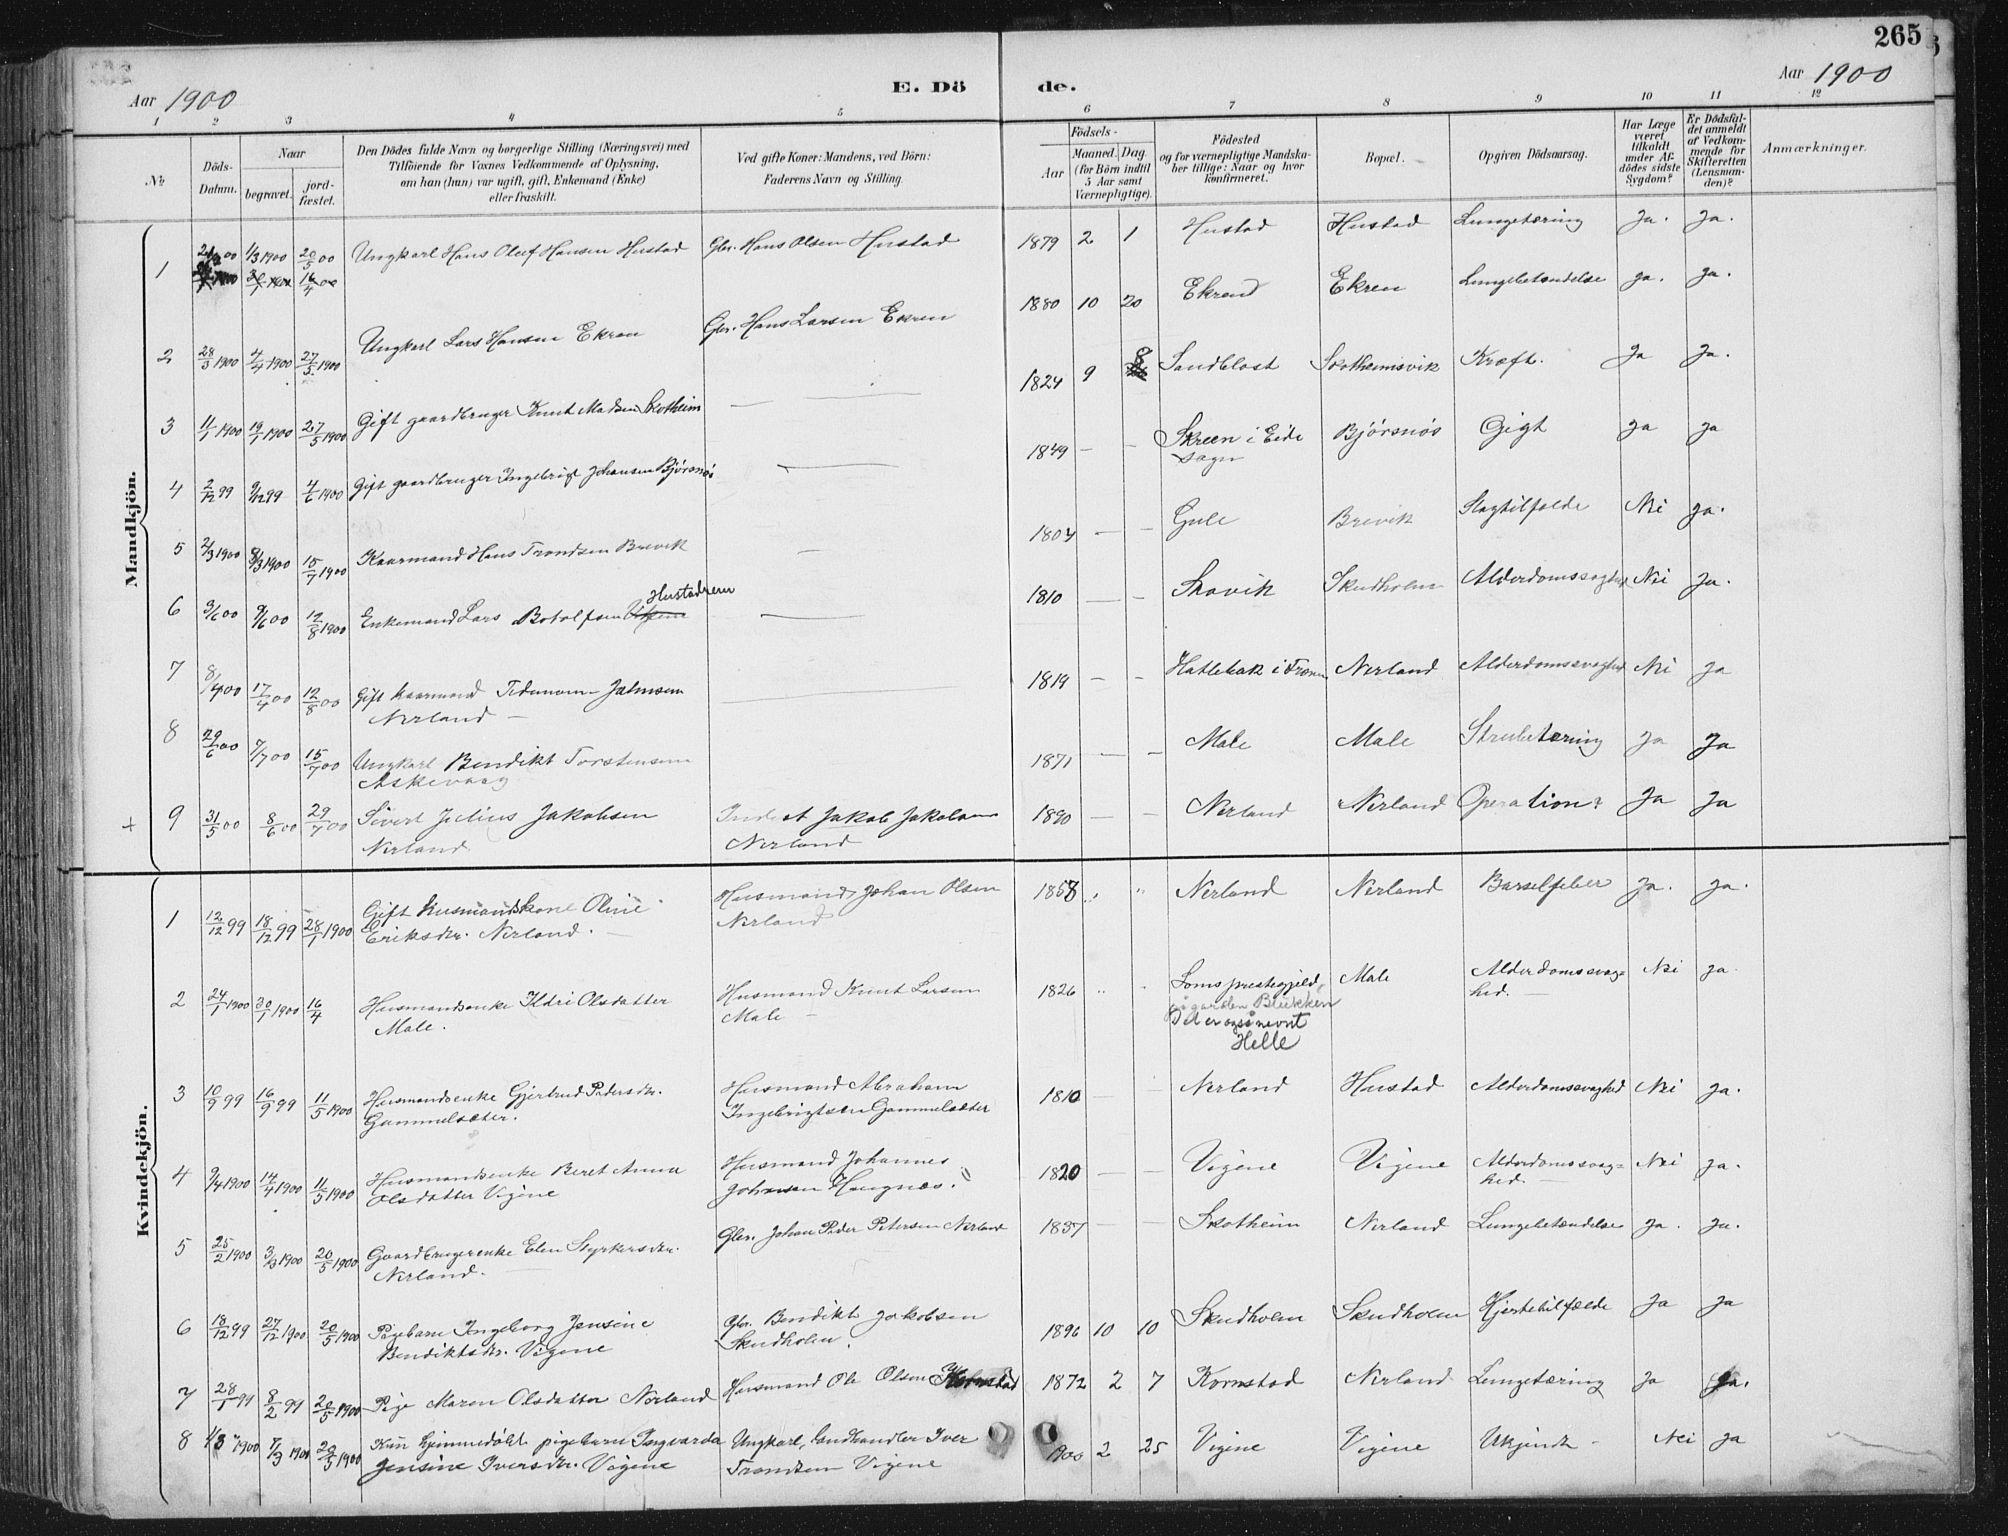 265
Aar 1900
E. Dö
de.
Aar 1900
1 2 3 4 5 6 7 8 9 10 11 12
№
Döds-
Datum.
Naar
begravet.
jord-
fæstet.
Den Dödes fulde Navn og borgerlige Stilling (Næringsvei) med
Tilföiende for Voxnes Vedkommende af Oplysning,
om han (hun) var ugift, gift, Enkemand (Enke)
eller fraskilt.
Ved gifte Koner: Mandens, ved Börn:
Faderens Navn og Stilling.
Födsels-
Aar
Maaned. Dag.
(for Börn indtil
5 Aar samt
Værnepligtige).
Födested
og for værnepligtige Mandska-
ber tillige: Naar og hvor
konfirmeret.
Bopæl.
Opgiven Dödsaarsag.
Har Læge
været
tilkaldt
under Af-
dödes sidste
Sygdom?
Er Dödsfal-
det anmeldt
af Vedkom-
mende for
Skifteretten
(Lensman-
den)?
Anmærkninger.
Mandkjön.
1 1/3 1900 20/5 00 Ungkarl Hans Oluf Hansen Hustad Gbr. Hans Olsen Hustad 1879 2 1 Hustad Hustad Lungetæring Ja. Ja.
2 28/3 1900 4/4 1900 27/5 1900 Ungkarl Lars Hansen Ekren Gbr. Hans Larsen Ekren 1880 10 20 Ekren Ekren Lungebetændelse ja. ja.
3 11/1 1900 19/1 1900 27/5 1900 Gift gaardbruger Knut Madsen Skotheim — 1824 9 8 Sandblost Skotheimsvik Kræft. ja ja.
4 2/12 99 9/12 99 4/6 1900 Gift gaardbruger Ingebrigt Johansen Bjørsnøs — 1849 — — Skreen i Eide
sogn Bjørsnøs Gigt ja ja
5 2/3 1900 8/3 1900 15/7 1900 Kaarmand Hans Trondsen Brevik — 1804 — — Gule Brevik Slagtilfælde Nei ja.
6 3/6 00 9/6 00 12/8 1900 Enkemand Lars Botolfsen Hustadnem — 1810 — — Skovik Skudholm Alderdomssvaghed Nei Ja.
7 8/4 00 17/4 00 12/8 00 Gift kaarmand Tidemann Johnsen
Nerland — 1819 — — Hatlebak i Fræn Nerland Alderdomssvaghed Nei ja
8 29/6 00 7/7 00 15/7 00 Ungkarl Bendikt Torstensen
Askevaag 1871 — — Male Male Strubetæring ja ja
9 31/5 00 8/6 00 29/7 00 Sivert Julius Jakobsen
Nerland Inderst Jakob Jakobsen
Nerland 1890 — — Nerland Nerland Operation? Ja Ja
Kvindekjön.
1 12/12 99 18/12 99 28/1 1900 Gift Husmandskone Oline
Eriksdtr. Nerland. — Husmand Johan Olsen
Nerland 1858 „ „ Nerland Nerland Barselfeber ja. ja.
2 24/1 1900 30/1 1900 16/4 Husmandsenke Ildri Olsdatter
Male. Husmand Knut Larsen
Male — 1826 „ „ Loms prestegjeld,
på garden Blikken
Det er også nevnt
Helle Male Alderdomssvag=
hed. — Nei ja.
3 10/9 99 16/9 99 11/5 1900 Husmandsenke Gjertrud Pedersdtr.
Gammelsæter. Husmand Abraham
Ingebrigtsen Gammelsæter 1810 — — Nerland Hustad Alderdomssvaghed Nei ja.
4 9/4 1900 14/4 1900 11/5 1900 Husmandsenke Beret Anna
Olsdatter Vigene Husmand Johannes
Johnsen Haugnæs. 1820 — — Vigene Vigene Alderdomssvag=
hed. — Nei ja.
5 25/2 1900 3/3 1900 20/5 1900 Gaardbrugerenke Elen Styrkersdtr.
Nerland. Gbr. Johan Peder Petersen Nerland 1837 — — Skotheim Nerland Lungebetændelse ja. ja.
6 18/12 99 27/12 1900 20/5 1900 Pigebarn Ingeborg Jensine
Bendiktsdtr. Vigene Gbr. Bendikt Jakobsen
Skudholm 1896 10 10 Skudholm Skudholm Hjertetilfælde Ja Ja
7 28/1 99 8/2 99 20/5 1900 Pige Maren Olsdatter Nerland Husmand Ole Olsen 1872 2 7 Kornstad Nerland Lungetæring Ja Ja.
8 1/3 1900 7/3 1900 20/5 1900 Kun hjemmedøbt pigebarn Ingvarda
Jensine Iversdtr. Vigene Ungkarl, landhandler Iver
Trondsen Vigene 1900 2 25 Vigene Vigene Ukjendt — Nei ja